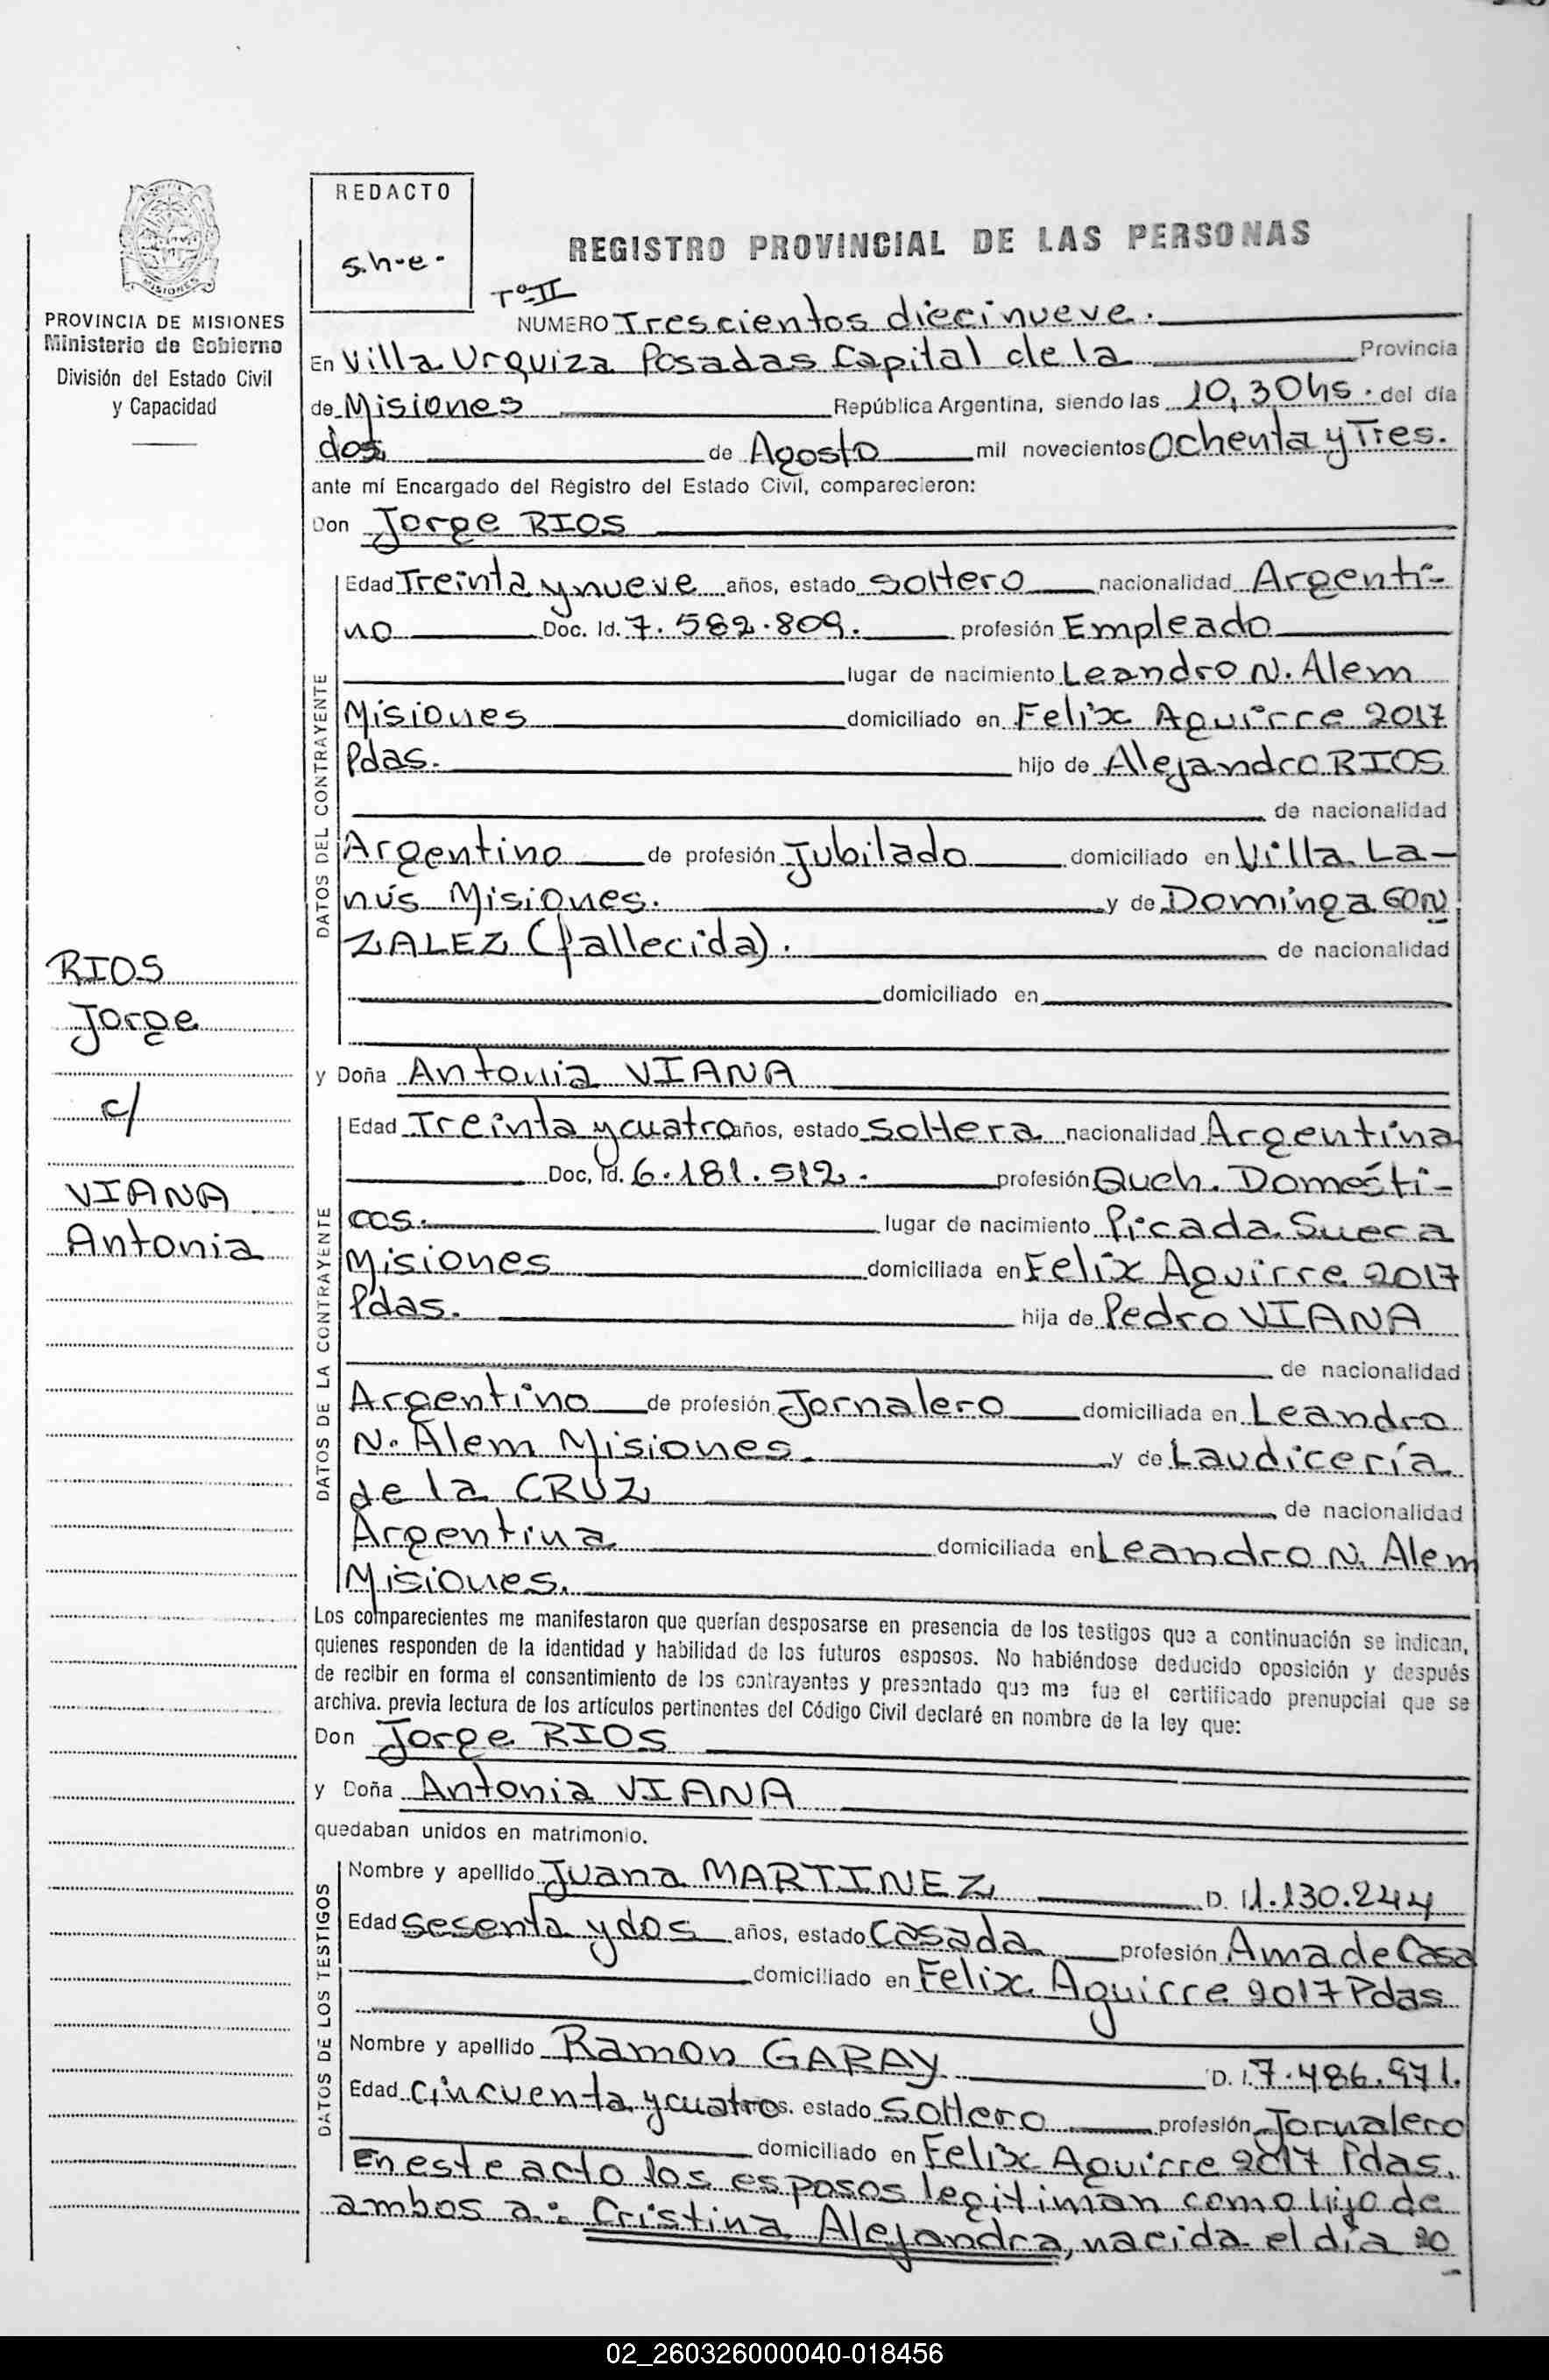 REDACTO
s.h-e-
REGISTRO PROVINCIAL DE LAS PERSONAS
MISIONES
PROVINCIA DE MISIONES
Ministerio de Gobierno
División del Estado Civil
y Capacidad
Tº-II
NUMERO Trescientos diecinueve.
En Villa Urquiza Posadas Capital de la Provincia
de Misiones República Argentina, siendo las 10,30hs. del día
dos de Agosto mil novecientos Ochenta y Tres.
ante mí Encargado del Registro del Estado Civil, comparecieron:
Don Jorge RIOS
DATOS DEL CONTRAYENTE
Edad Treinta y nueve años, estado soltero nacionalidad Argenti-
no Doc. Id. 7.582.809. profesión Empleado
lugar de nacimiento Leandro N. Alem
Misiones domiciliado en Felix Aguirre 2017
Pdas. hijo de Alejandro RIOS
de nacionalidad
Argentino de profesión Jubilado domiciliado en Villa La-
nús Misiones. y de Dominga GON
ZALEZ (fallecida). de nacionalidad
domiciliado en
RIOS
Jorge
c/
VIANA
Antonia
y Doña Antonia VIANA
DATOS DE LA CONTRAYENTE
Edad Treinta y cuatro años, estado soltera nacionalidad Argentina
Doc. Id. 6.181.512. profesión Queh. Domésti-
cos. lugar de nacimiento Picada Sueca
Misiones domiciliada en Felix Aguirre 2017
Pdas. hija de Pedro VIANA
de nacionalidad
Argentino de profesión Jornalero domiciliada en Leandro
N. Alem Misiones. y de Laudicería
de la CRUZ de nacionalidad
Argentina domiciliada en Leandro N. Alem
Misiones.
Los comparecientes me manifestaron que querían desposarse en presencia de los testigos que a continuación se indican,
quienes responden de la identidad y habilidad de los futuros esposos. No habiéndose deducido oposición y después
de recibir en forma el consentimiento de los contrayentes y presentado que me fue el certificado prenupcial que se
archiva. previa lectura de los artículos pertinentes del Código Civil declaré en nombre de la ley que:
Don Jorge RIOS
y Doña Antonia VIANA
quedaban unidos en matrimonio.
DATOS DE LOS TESTIGOS
Nombre y apellido Juana MARTINEZ D. I 1.130.244
Edad sesenta y dos años, estado Casada profesión Ama de Casa
domiciliado en Felix Aguirre 2017 Pdas
Nombre y apellido Ramon GARAY D. I. 7.486.971.
Edad Cincuenta y cuatro s. estado Soltero profesión Jornalero
domiciliado en Felix Aguirre 2017 Pdas.
En este acto los esposos legitiman como hijo de
ambos a: Cristina Alejandra, nacida el día 20
02_260326000040-018456